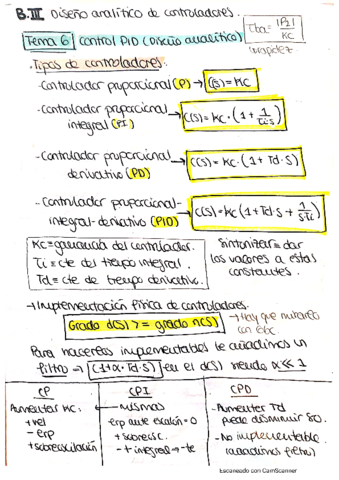 B.III Diseño analítico de controladores.
Tema 6 Control PID (Diseño analítico)
Tba = |P1| / KC
rapidez
Tipos de controladores.
-Controlador proporcional (P) → C(s) = KC
-Controlador proporcional integral (PI) → C(s) = KC · (1 + 1/(Ti·s))
-Controlador proporcional derivativo (PD) → C(s) = KC · (1 + Td · S)
-Controlador proporcional-integral-derivativo (PID) → C(s) = KC (1 + Td · S + 1/(STi))
KC = ganancia del controlador.
Ti = cte del tiempo integral.
Td = cte de tiempo derivativo.
Sintonizar = dar
los valores a estas
constantes.
→ Implementación física de controladores.
Grado d(s) >= grado n(s)
→ Hay que mirarlo
Para hacerlos implementables le añadimos un
filtro → (1 + α · Td · S) en el d(s) siendo α << 1
CP
Aumentar KC:
+ vel
- erp
+ sobreoscilación
CPI
- mismas
erp ante escalón = 0
+ sobreosc.
- + integral → - te
CPD
- Aumenter Td
puede disminuir SO.
- No implementable
(añadimos filtro)
Escaneado con CamScanner